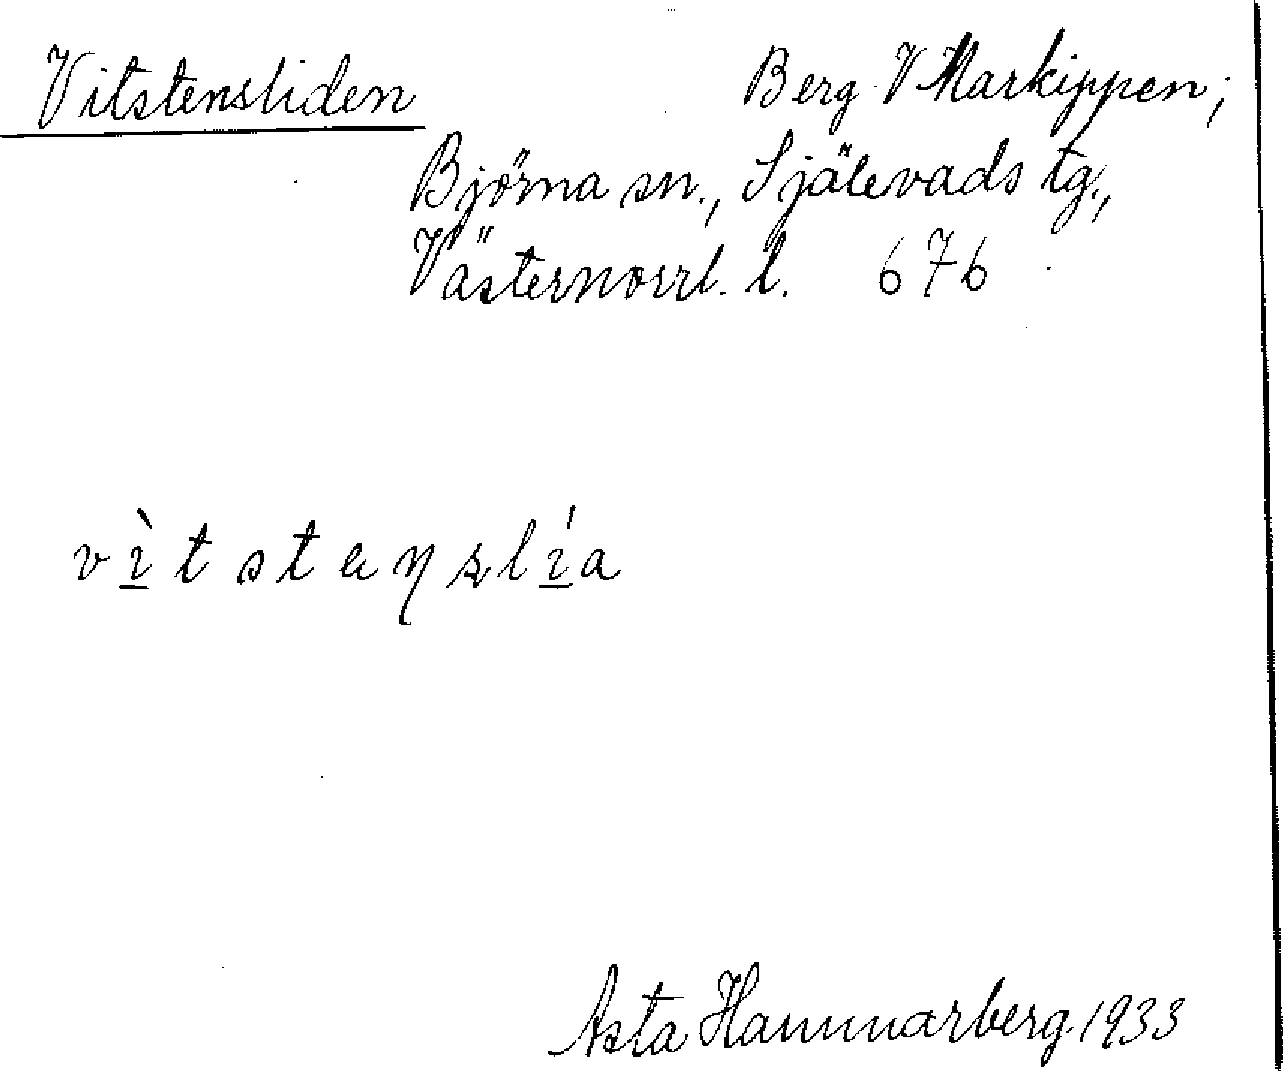 Vitstensliden Berg V Markippen;
Björna sn., Själevads tg.,
Västernorrl. l. 676
vı̀t steŋslı́a
Asta Hammarberg 1933